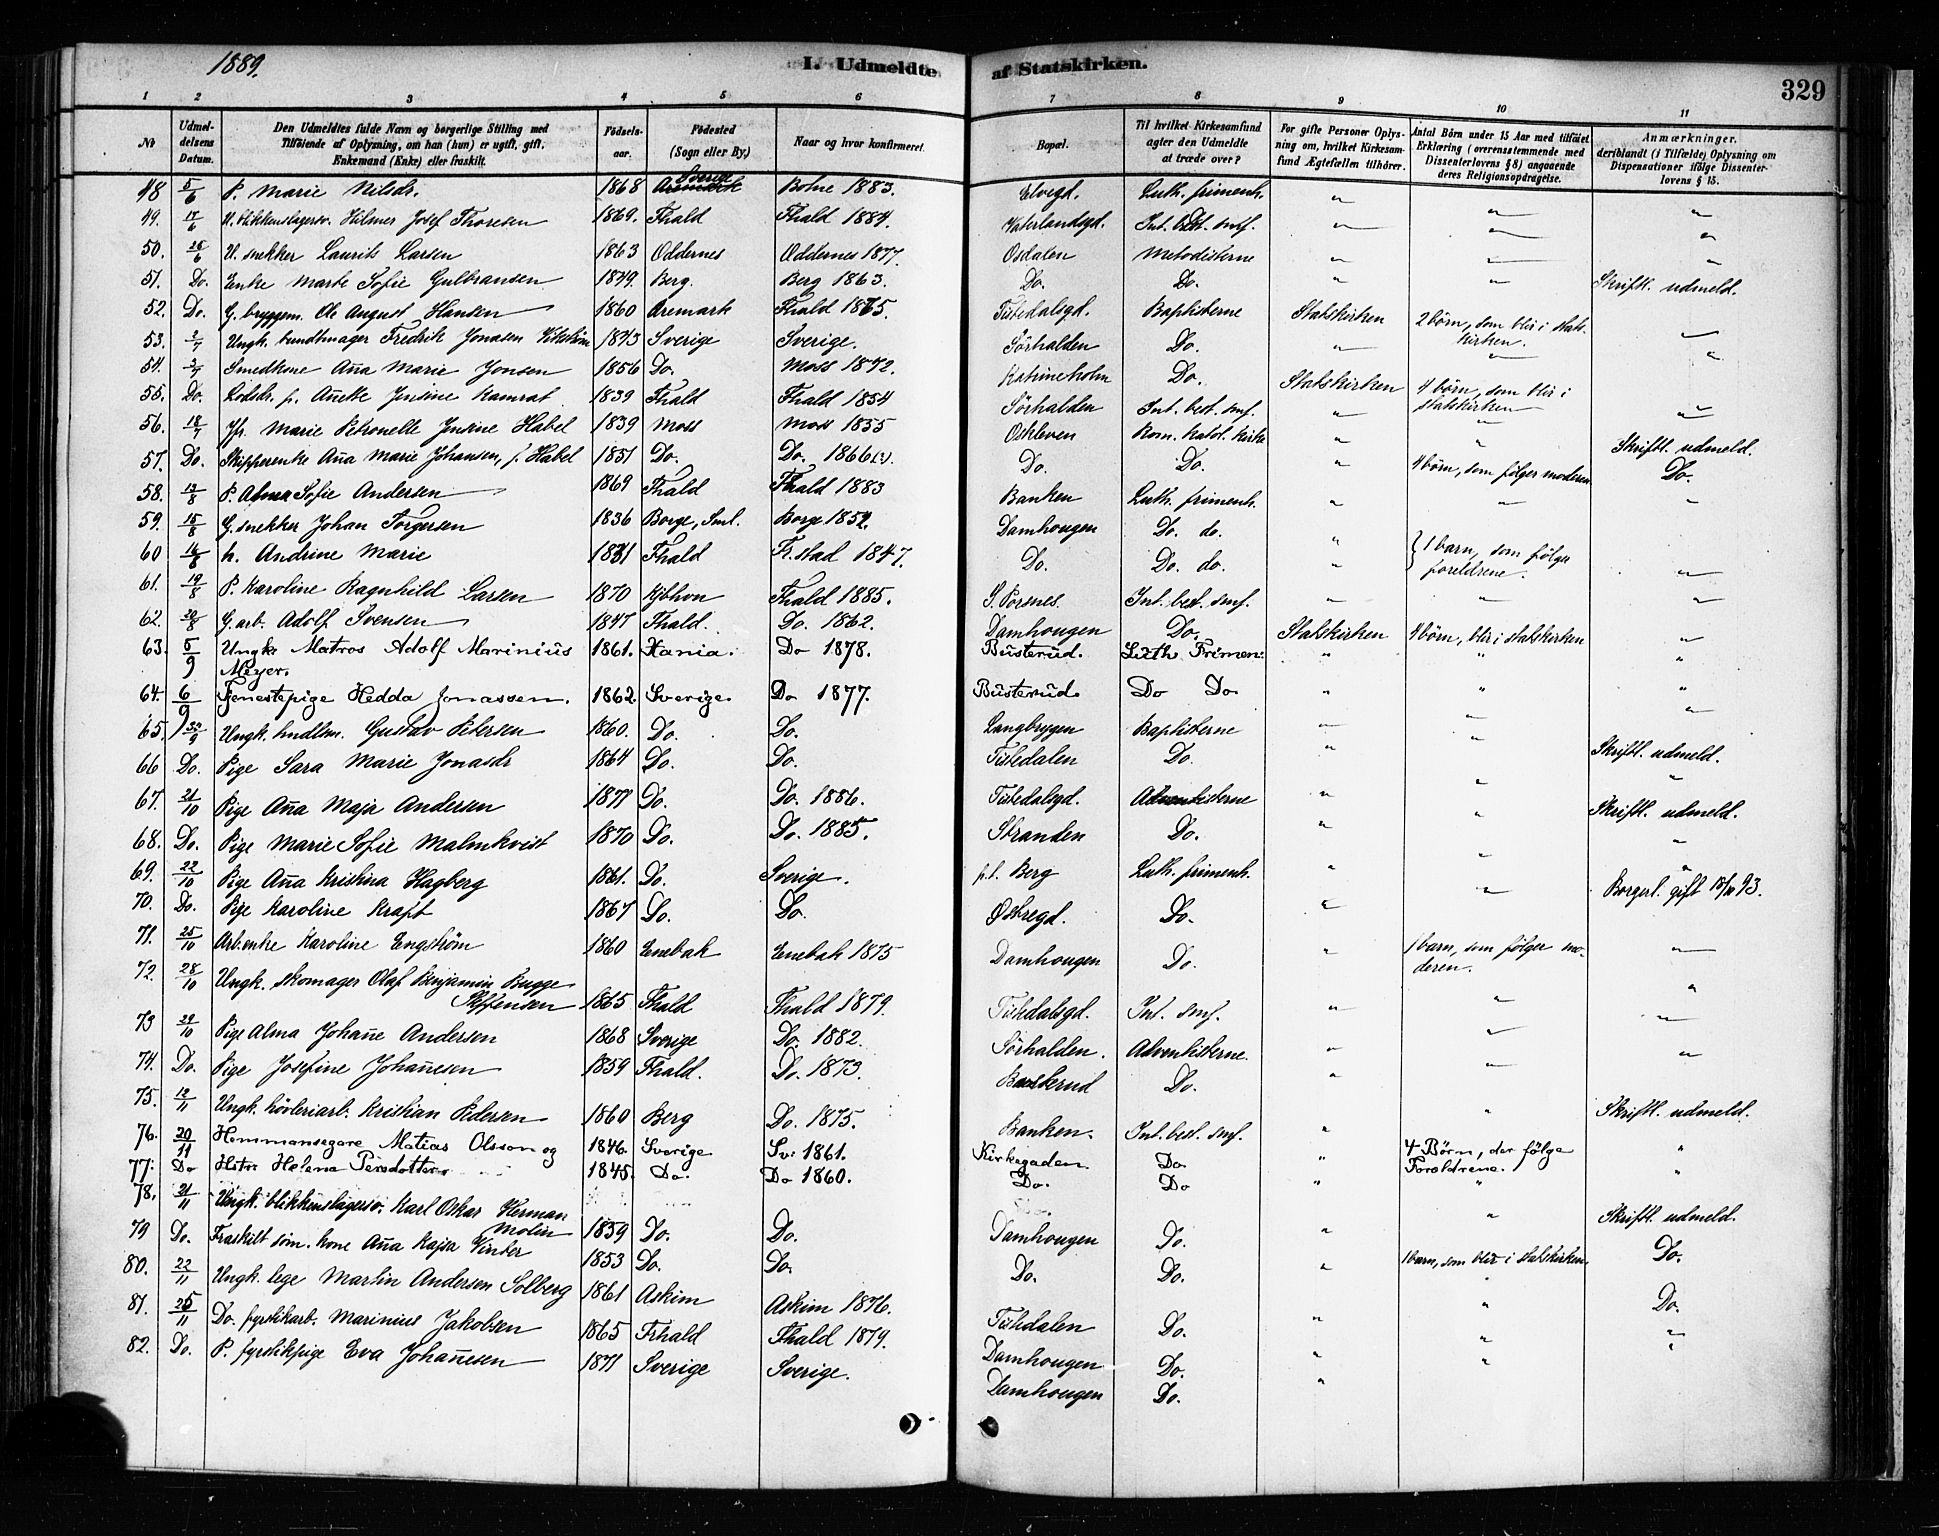 1889.
I. Udmeldte af Statskirken.
329
1 2 3 4 5 6 7 8 9 10 11
No
Udmeldelsens Datum.
Den Udmeldtes fulde Navn og borgerlige Stilling med Tilføiende af Oplysning, om han (hun) er ugift, gift, Enkemand (Enke) eller fraskilt.
Fødselsaar.
Fødested (Sogn eller By.)
Naar og hvor konfirmeret.
Bopæl.
Til hvilket Kirkesamfund agter den Udmeldte at træde over?
For gifte Personer Oplysning om, hvilket Kirkesamfund Ægtefællen tilhører.
Antal Børn under 15 Aar med tilføiet Erklæring (overensstemmende med Dissenterlovens § 8) angaaende deres Religionsopdragelse.
Anmærkninger. deriblandt (i Tilfælde) Oplysning om Dispensationer ifølge Dissenterlovens § 15.
48 5/6 P. Marie Nilsdr. 1868 Sverige Bohne 1883. Elvegd. Luth. frimenh. " " "
49. 17/6 U. blikkenslagersv. Hilmer Josef Thoresen 1869. Fhald Fhald 1884. Vaterlandsgd. Int. best. smf. " " "
50. 26/6 U. snekker Laurits Larsen 1863 Oddernes Oddernes 1877. Osdalen Metodisterne " " "
51. Do. Enke Marte Sofie Gulbransen 1849. Berg. Berg 1863. Do. Do. " " Skriftl. udmeld.
52. Do. G. bryggem. Ole August Hansen 1860 Aremark Fhald 1875. Tistedalsgd. Baptisterne Statskirken 2 børn, som blir i statskirken. "
53. 2/7 Ungk. bundtmager Fredrik Jonasen Vikström 1843 Sverige Sverige. Sörhalden Do. " " "
54. 3/7 Smedkone Anna Marie Jonsen 1856 Do. Moss 1872. Katrineholm Do. Statskirken 4 børn, som blir i statskirken "
55. Do. Lodsdr. p. Anette Jensine Kamrat 1839 Fhald Fhald 1854 Sörhalden Int. best. smf. " " "
56. 18/7 Jfr. Marie Petronelle Jensine Habel 1839 Moss Moss 1855 Oskleven Rom. katol. kirke " " Skriftl. udmeld.
57. Do. Skipperenke Anna Marie Johansen, f. Habel 1851 Do. Do. 1866(?). Do. Do. " 4 børn, som følger moderen Do.
58. 13/8 P. Alma Sofie Andersen 1869 Fhald Fhald 1883 Banken Luth. frimenh. " " "
59. 15/8 G. snekker Johan Torgersen 1836 Borge, Sml. Borge 1852. Damhougen Do. do. " } 1 barn, som følger foreldrene.
60 16/8 h. Andrine Marie 1831 Fhald Fr.stad 1847. Do. Do. do. " "
61. 19/8 P. Karoline Ragnhild Larsen 1870 Kjbhvn Fhald 1885. S. Porsnes. Int. best. smf. " " "
62. 20/8 G. arb. Adolf Svensen 1847 Fhald. Do. 1862. Damhougen Do. Statskirken 4 børn, blir i statskirken "
63. 5/9 Ungk. Matros Adolf Marinius Meyer. 1861. Xania. Do 1878. Busterud. Luth Frimen: " " "
64. 6/9 Tjenestepige Hedda Jonassen. 1862. Sverige. Do 1877. Busterud. Do Do " " "
65. Ungk. hndlsm. Gustav Petersen 1860. Do. Do. Langbryggen Baptisterne " " "
66 Do. Pige Sara Marie Jonasdr 1864 Do. Do. Tistedalen Do. " " Skriftl. udmeld.
67. 21/10 Pige Anna Maja Andersen 1871 Do. Do. 1886. Tistedalsgd. Adventisterne " " "
68. Do. Pige Marie Sofie Malmkvist 1870 Do. Do. 1885. Stranden Do. " " Skriftl. udmeld.
69. 22/10 Pige Anna Kristina Hagberg 1861. Do. Sverige. p.t. Berg Luth. frimenh. " " "
70. Do. Pige Karoline Kraft 1867 Do. Do. Østregd. Do. " " Borgerl. gift 15/11 93.
71. 25/10 Arb.enke Karoline Engström 1860 Enebak Enebak 1875 Damhougen Do. " 1 barn, som følger moderen. "
72. 28/10 Ungk. skomager Olaf Benjamin Bugge Steffensen 1865 Fhald Fhald 1879. Tistedalsgd. Int. smf. " " "
73 29/10 Pige Alma Johanne Andersen 1868 Sverige Do. 1882. Sörhalden. Adventisterne. " " "
74. Do. Pige Josefine Johannesen 1859 Fhald. Do. 1873. Buskerud Do. " " "
75. 12/11 Ungk. hövleriarb. Kristian Pedersen 1860 Berg Do. 1875. Banken. Int. best. smf. " " Skriftl. udmeld.
76. 20/11 Hemmansegare Matias Olsson og 1846. Sverige Sv: 1861. Kirkegaden. Do " 4 Børn, der følge Forældrene. "
77. Do Hstr Helena Persdotter. 1845. Do. Do 1860. Do. Do " " "
78. 21/11 Ungk. blikkenslagersv. Karl Oskar Herman Molin 1859 Do. Do. Damhougen Do. " " Skriftl. udmeld.
79 Do. Fraskilt söm. kone Anna Kajsa Vinter 1853 Do. Do. Do. Do. " 1 barn, som blir i statskirken. Do.
80. 22/11 Ungk. lege Martin Andersen Solberg 1861 Askim Askim 1876. Tistedalen Do. " " Do.
81. 25/11 Do. fyrstikarb. Marinius Jakobsen 1865 Frhald Fhald 1879. Damhougen Do. " " "
82. Do. P. fyrstikpige Eva Johannesen 1871 Sverige Sverige. Damhougen Do. " " "